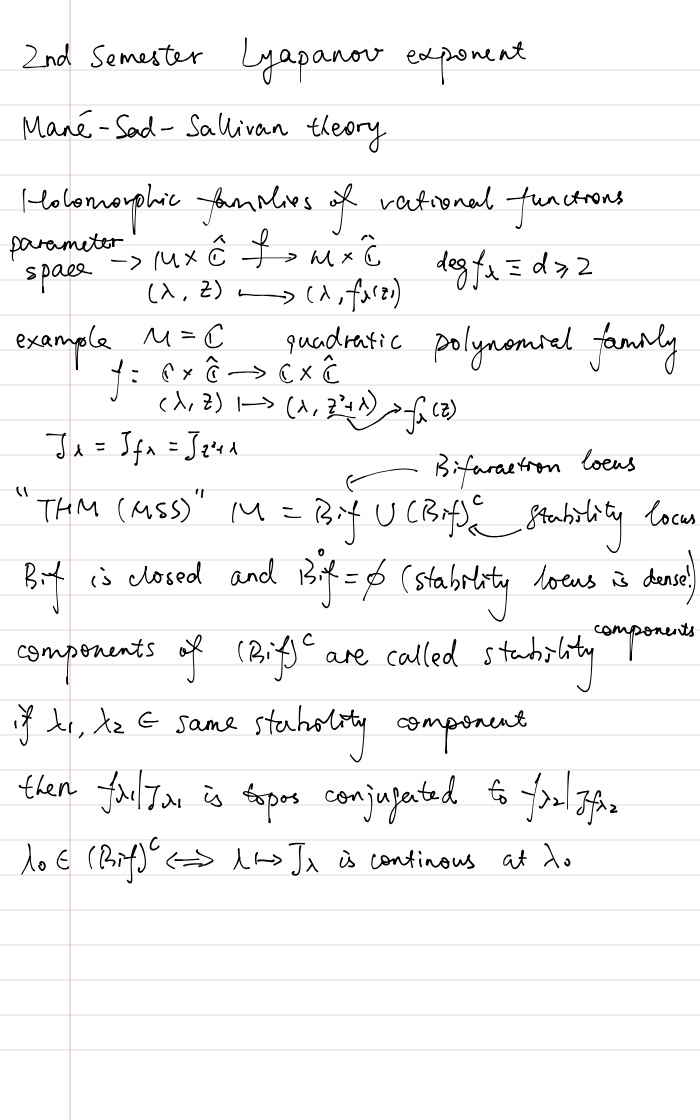 2nd Semester Lyapanov exponent
Mané-Sad-Sallivan theory
Holomorphic families of rational functions
parameter space → M × Ĉ →^f M × Ĉ deg f_λ ≡ d ⩾ 2
(λ, z) ⟼ (λ, f_λ(z))
example M = ℂ quadratic polynomial family
f: ℂ × Ĉ → ℂ × Ĉ
(λ, z) ↦ (λ, z²+λ) → f_λ(z)
J_λ = J_{f_λ} = J_{z²+λ}
Bifurcation locus
"THM (MSS)" M = Bif ∪ (Bif)^c stability locus
Bif is closed and B̊if = ∅ (stability locus is dense!)
components of (Bif)^c are called stability components
if λ₁, λ₂ ∈ same stability component
then f_{λ₁}|J_{λ₁} is topos conjugated to f_{λ₂}|J_{f_{λ₂}}
λ₀ ∈ (Bif)^c ⟺ λ ↦ J_λ is continous at λ₀